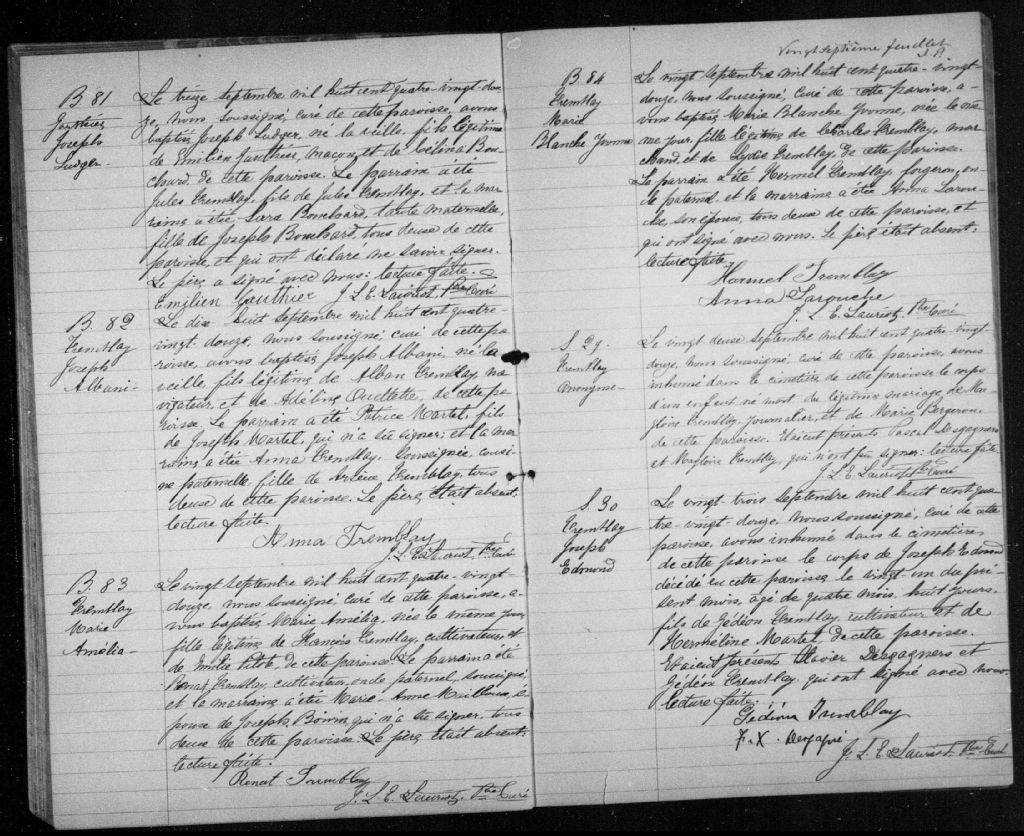 B. 81
Gauthier
Joseph
Ludger.
Le treize septembre mil huit cent quatre-vingt-dou-
ze, nous, soussigné, curé de cette paroisse, avons
baptisé Joseph Ludger, né la veille, fils légitime
de Emilien Gauthier, maçon, et de Célina Bou-
chard, de cette paroisse. Le parrain a été
Jules Tremblay, fils de Jules Tremblay, et la mar-
raine a été Sara Bouchard, tante maternelle,
fille de Joseph Bouchard, tous deux de cette
paroisse, et qui ont déclaré ne savoir signer.
Le père a signé avec nous: lecture faite.
Emilien Gauthier J. L. E. Lauriot, Ptre Curé
B. 82
Tremblay
Joseph
Albani-
Le dix-huit septembre mil huit cent quatre-
vingt-douze, nous soussigné, curé de cette pa-
roisse, avons baptisé Joseph Albani, né la
veille, fils légitime de Alban Tremblay, na-
vigateur, et de Adéline Ouellette, de cette pa-
roisse. Le parrain a été Patrice Martel, fils
de Joseph Martel, qui n'a su signer; et la mar-
raine a été Anna Tremblay, soussignée, cousi-
ne paternelle, fille de Tremblay, tous
deux de cette paroisse. Le père était absent.
lecture faite.
Anna Tremblay
J. L. E. Lauriot, Ptre Curé
B. 83
Tremblay
Marie
Amelia-
Le vingt septembre mil huit cent quatre-vingt-
douze, nous soussigné, curé de cette paroisse, a-
vons baptisé Marie Amélia, née le même jour,
fille légitime de François Tremblay, cultivateur, et
de Emilie Pilote, de cette paroisse. Le parrain a été
Renat Tremblay, cultivateur, oncle paternel, soussigné,
et la marraine a été Marie-Anne é-
pouse de Joseph Boivin, qui n'a su signer, tous
deux de cette paroisse. Le père était absent.
lecture faite.
Renat Tremblay
J. L. E. Lauriot, Ptre Curé
Vingt septième feuillet
B. 84
Tremblay
Marie
Blanche Yvonne
Le vingt septembre mil huit cent quatre-vingt-
douze, nous soussigné, curé de cette paroisse, a-
vons baptisé Marie Blanche Yvonne, née le mê-
me jour, fille légitime de Charles Tremblay, mar-
chand, et de Lydie Tremblay, de cette paroisse.
Le parrain a été Hermel Tremblay, forgeron, on-
cle paternel, et la marraine a été Anna Larou-
che, son épouse, tous deux de cette paroisse, et
qui ont signé avec nous. Le père était absent.
lecture faite.
Hormel Tremblay
Anna Larouche
J. L. E. Lauriot, Ptre Curé
S. 29.
Tremblay
Anonyme-
Le vingt deux septembre mil huit cent quatre-vingt-
douze, nous soussigné, curé de cette paroisse, avons
inhumé dans le cimetière de cette paroisse le corps
d'un enfant né mort du légitime mariage de Ma-
gloire Tremblay, journalier, et de Marie Bergeron,
de cette paroisse. Etaient présents Pascal Desgagners
et Magloire Tremblay, qui n'ont pu signer: lecture faite.
J. L. E. Lauriot, Ptre Curé
S. 30
Tremblay
Joseph
Edmond
Le vingt-trois septembre mil huit cent qua-
tre-vingt-douze, nous soussigné, curé de cette
paroisse, avons inhumé dans le cimetière
de cette paroisse le corps de Joseph Edmond
décédé en cette paroisse le vingt-un du pré-
sent mois, agé de quatre mois, huit jours,
fils de Gédéon Tremblay, cultivateur, et de
Herméline Martel, de cette paroisse.
Etaient présents Xavier Desgagners et
Gédéon Tremblay, qui ont signé avec nous
lecture faite.
Gédéon Tremblay
F. X. Desgagné
J. L. E. Lauriot, Ptre Curé